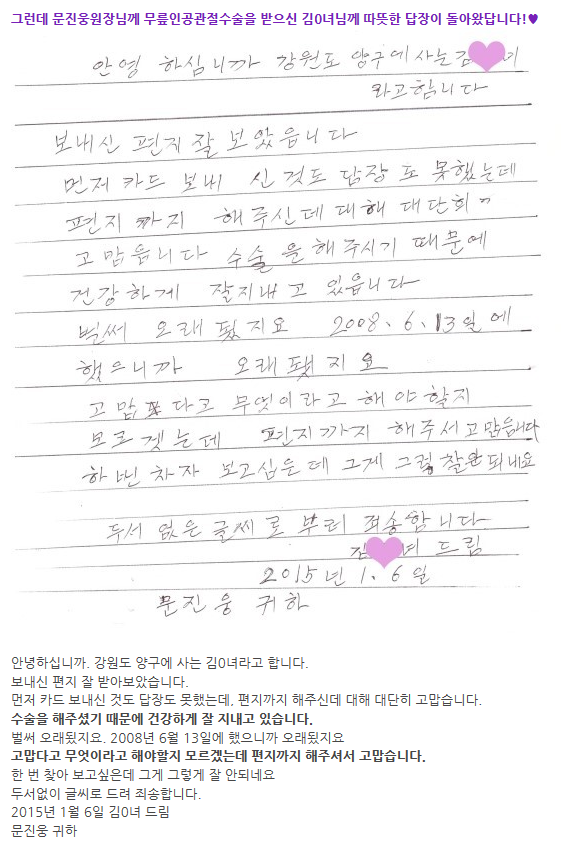 그런데 문진웅원장님께 무릎인공관절수술을 받으신 김0녀님께 따뜻한 답장이 돌아왔답니다!♥
안영 하심니까 강원도 양구에 사는 김
라고 함니다
보내신 편지 잘 보았읍니다
먼저 카드 보내 신 것도 답장 도 못했는데
편지 까지 해주신데 대해 대단희
고맙읍니다 수술 을 해주시기 때문에
건강하게 잘지내고 있읍니다
벌써 오래 됬지요 2008.6.13일에
했으니까 오래됐지요
고맙다고 무엇이라고 해야 할지
모르겟는데 편지까지 해주서 고맙읍니다
하번 차자 보고십은데 그게 그렇 잘안되네요
두서 없은 글씨로 부터 죄송합니다
김 녀 드림
2015년 1.6일
문진웅 귀하
안녕하십니까. 강원도 양구에 사는 김0녀라고 합니다.
보내신 편지 잘 받아보았습니다.
먼저 카드 보내신 것도 답장도 못했는데, 편지까지 해주신데 대해 대단히 고맙습니다.
수술을 해주셨기 때문에 건강하게 잘 지내고 있습니다.
벌써 오래됬지요. 2008년 6월 13일에 했으니까 오래됬지요
고맙다고 무엇이라고 해야할지 모르겠는데 편지까지 해주셔서 고맙습니다.
한 번 찾아 보고싶은데 그게 그렇게 잘 안되네요
두서없이 글씨로 드려 죄송합니다.
2015년 1월 6일 김0녀 드림
문진웅 귀하